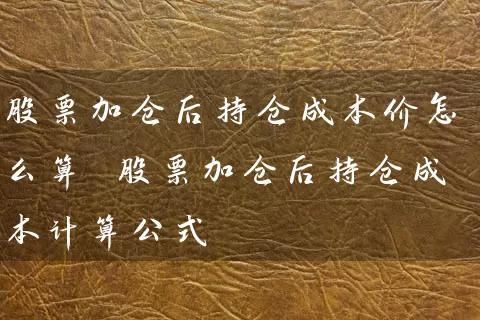 股票加仓后持仓成本价怎
么算 股票加仓后持仓成
本计算公式